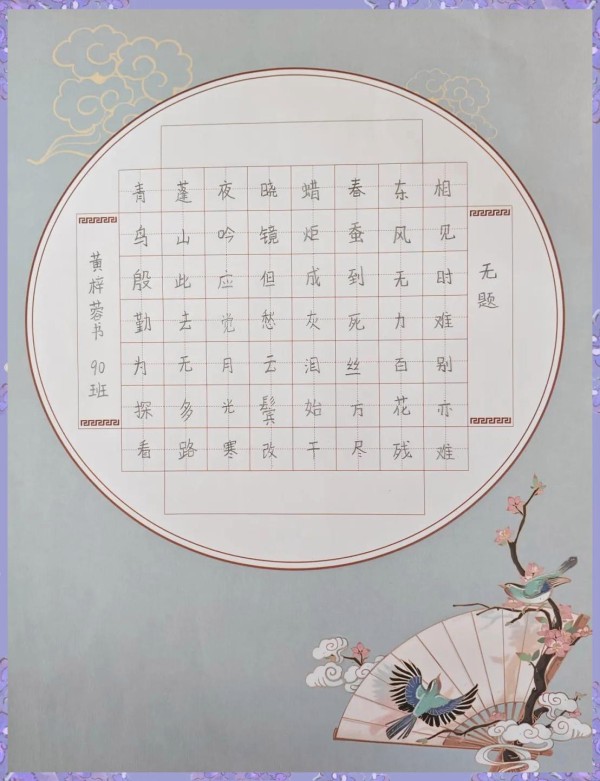 无题
相见时难别亦难
东风无力百花残
春蚕到死丝方尽
蜡炬成灰泪始干
晓镜但愁云鬓改
夜吟应觉月光寒
蓬山此去无多路
青鸟殷勤为探看
黄梓蓉书 90班